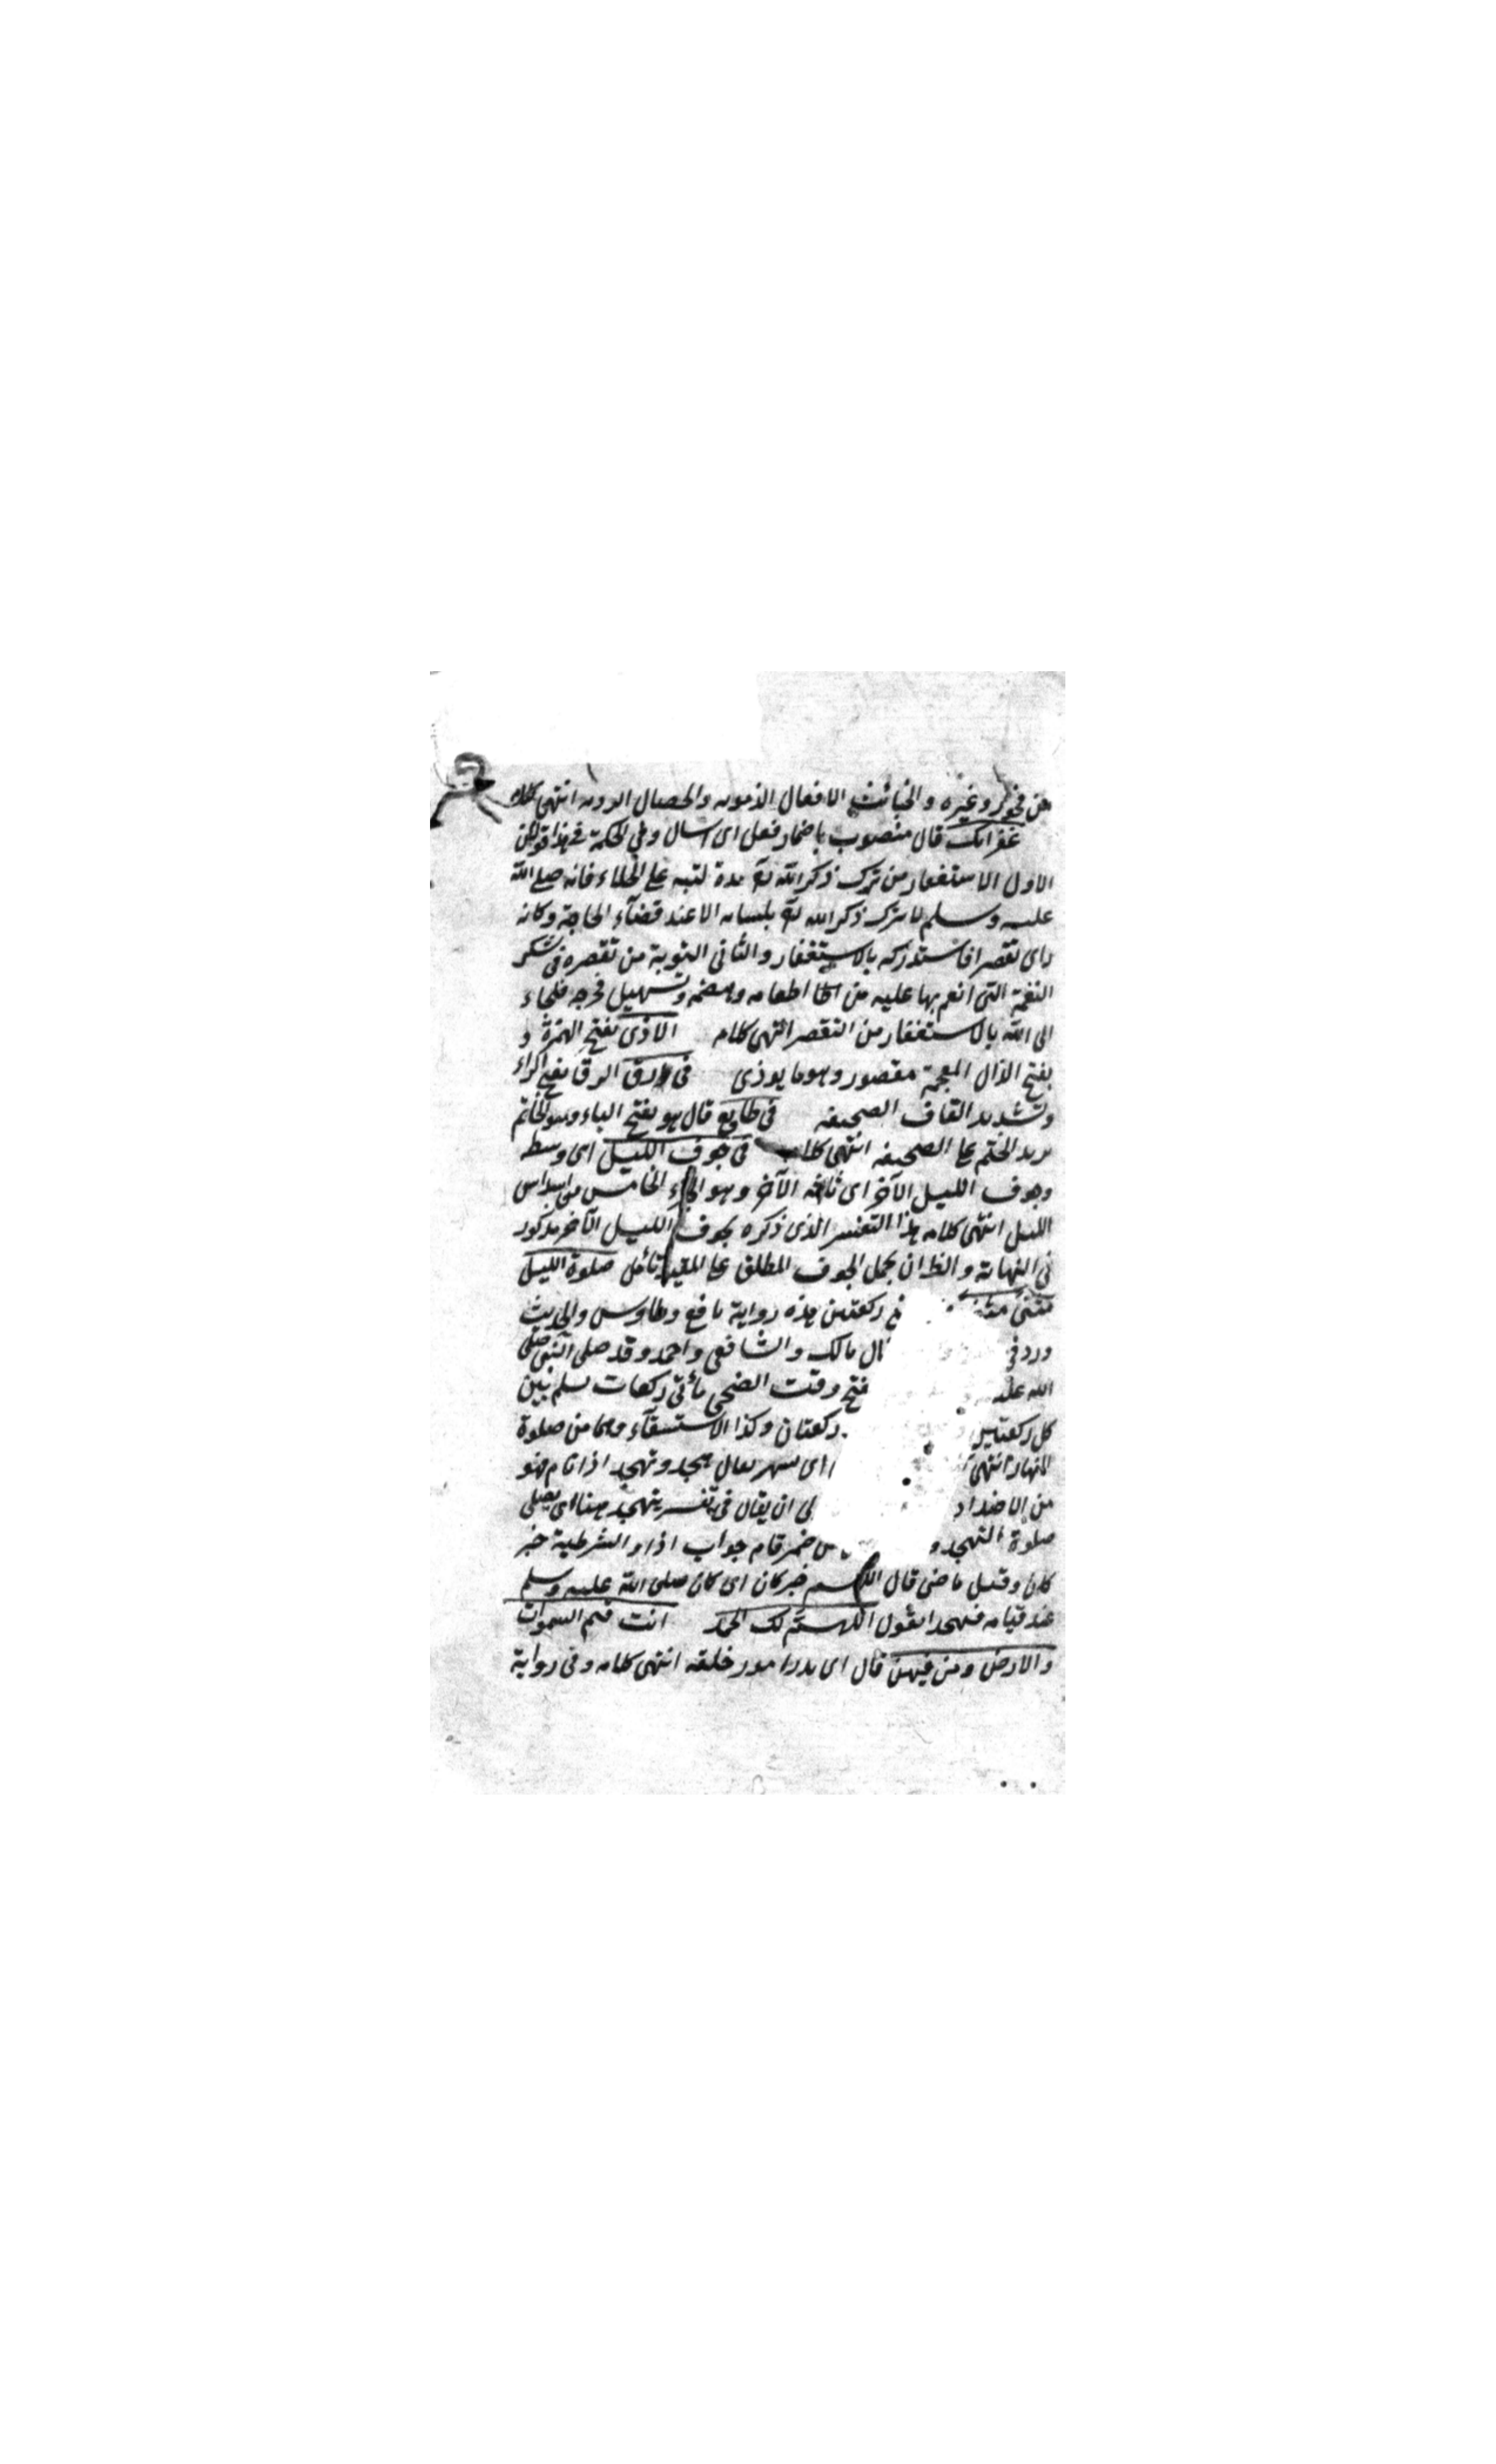 من فجور وغيره والخبائث الافعال الذمومه والخصال الرديه انتهى كلامه
غفرانك قال منصوب باضمار فعل اى اسال وفي الحكمة في هذا قولان
الاول الاستغفار من ترك ذكر الله تع مدة لبثه على الخلاء فانه صلى الله
عليه وسلم لا يترك ذكر الله تع بلسانه الا عند قضآء الحاجة وكانه
راى تقصيرا فاستدركه بالاستغفار والثانى التوبة من تقصيره فى شكر
النعمة التى انعم بها عليه من اطعامه وهضمه وتسهيل مخرجه فلجاء
الى الله بالاستغفار من التقصير انتهى كلامه الاذى بفتح الهمزة و
بفتح الذال المعجمة مقصور وهو ما يوذى فى رق الرق بفتح الراء
وتشديد القاف الصحيفه فى طابع قال هو بفتح الباء وهو الخاتم
يريد الختم على الصحيفه انتهى كلامه فى جوف الليل اى وسطه
وجوف الليل الآخر اى ثلثه الآخر وهو الجزء الخامس من اسداس
الليل انتهى كلامه هذا التفسير الذى ذكره بجوف الليل الآخر مذكور
فى النهاية والظ ان يحمل الجوف المطلق على المقيد تأمل صلوة الليل
مثنى مثنى ركعتين هذه رواية نافع وطاوس والحديث
ورد فى قال مالك والشافعى واحمد وقد صلى النبى صلى
الله عليه فتح وقت الضحى ثمانى ركعات يسلم بين
كل ركعتين ركعتان وكذا الاستسقآء وهما من صلوة
النهار انتهى اى سهر يقال هجد وتهجد اذا نام فهو
من الاضداد ان يقال فى تفسير يتهجد هنا اى يصلى
صلوة التهجد و ضمير قام جواب اذا والشرطية خبر
كان وقيل ماضى قال اللهم خبر كان اى كان صلى الله عليه وسلم
عند قيامه متهجدا يقول اللهم لك الحمد انت قيم السموات
والارض ومن فيهن قال اى مدبر امور خلقه انتهى كلامه وفى رواية